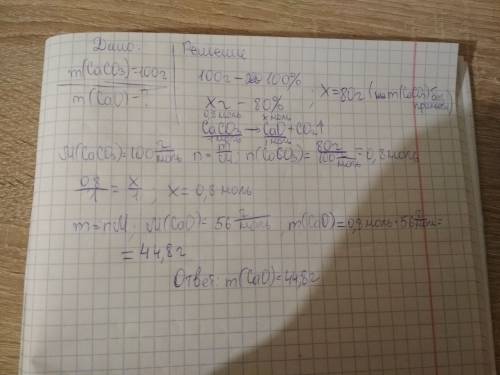 Дано:
Решение
m(CaCO3)=100г
m(CaO)-?
100г - 100%
Xг - 80% , X=80г ( m(CaCO3) без примесей)
0,8 моль x моль
CaCO3 → CaO + CO2↑
1 моль 1 моль
M(CaCO3)=100 г/моль n = m/M ; n(CaCO3) = 80г/100 г/моль = 0,8 моль
0,8/1 = x/1 , x = 0,8 моль
m = n·M, M(CaO) = 56 г/моль , m(CaO) = 0,8 моль · 56 г/моль =
= 44,8г
Ответ: m(CaO)=44,8г